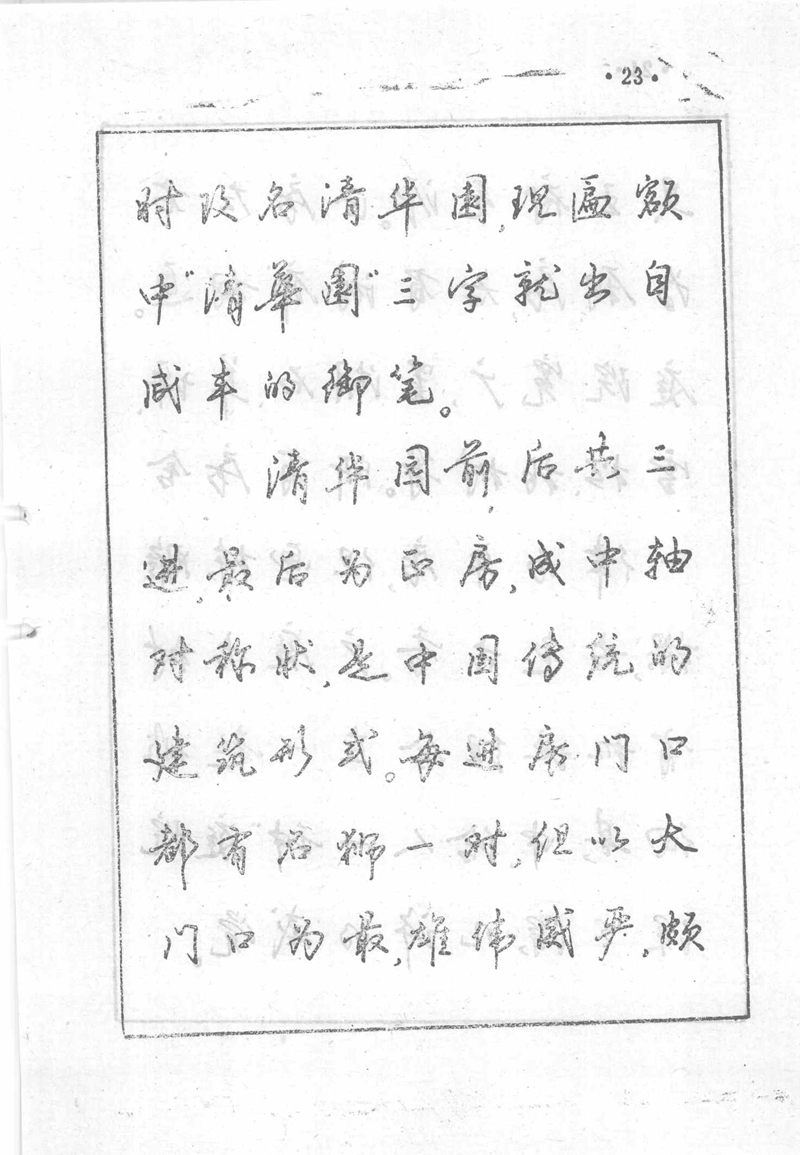 ·23·
时改名清华园,现匾额
中“清華園”三字就出自
咸丰的御笔。
清华园前后共三
进,最后为正房,成中轴
对称状,是中国传统的
建筑形式。每进房门口
都有石狮一对,但以大
门口为最,雄伟威严,颇